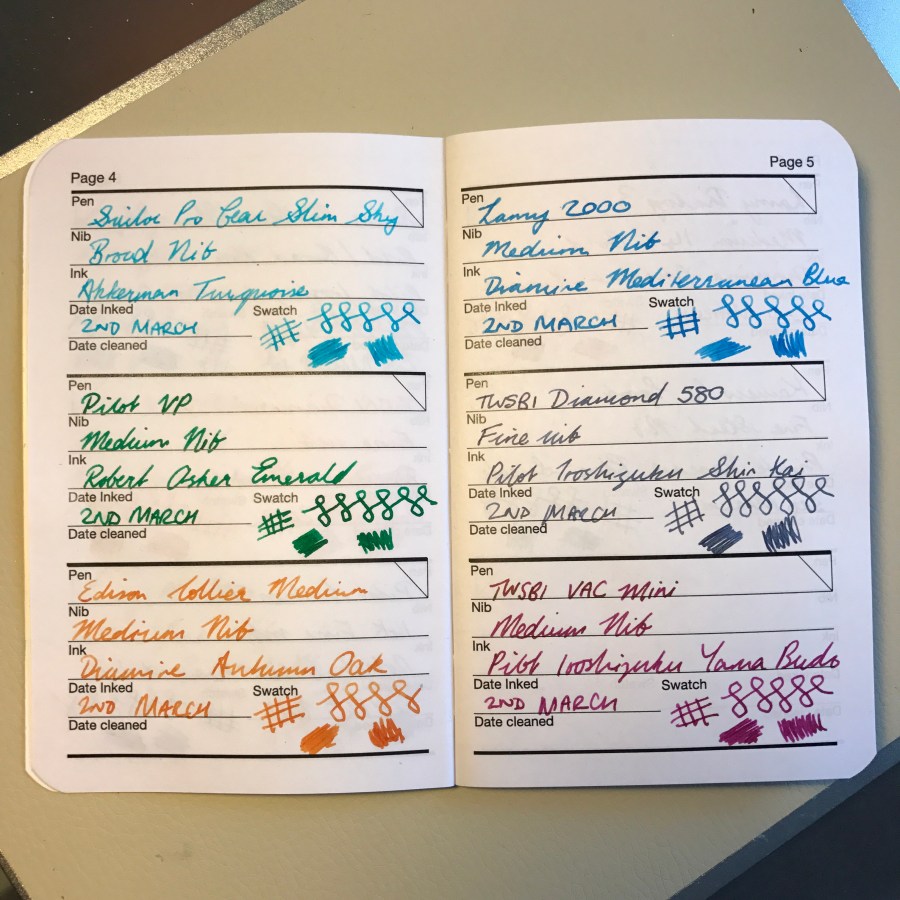 Page 4
Pen
Sailor Pro Gear Slim Sky
Nib
Broad Nib
Ink
Akkerman Turquoise
Date Inked
Swatch
2ND MARCH
Date cleaned
Pen
Pilot VP
Nib
Medium Nib
Ink
Robert Oster Emerald
Date Inked
Swatch
2ND MARCH
Date cleaned
Pen
Edison Collier Medium
Nib
Medium Nib
Ink
Diamine Autumn Oak
Date Inked
Swatch
2ND MARCH
Date cleaned
Page 5
Pen
Lamy 2000
Nib
Medium Nib
Ink
Diamine Mediterranean Blue
Date Inked
Swatch
2ND MARCH
Date cleaned
Pen
TWSBI Diamond 580
Nib
Fine nib
Ink
Pilot Iroshizuku Shin Kai
Date Inked
Swatch
2ND MARCH
Date cleaned
Pen
TWSBI VAC Mini
Nib
Medium Nib
Ink
Pilot Iroshizuku Yama Budo
Date Inked
Swatch
2ND MARCH
Date cleaned